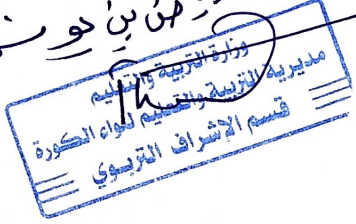 وزارة التربية والتعليم
مديرية التربية والتعليم للواء الكورة
قسم الاشراف التربوي